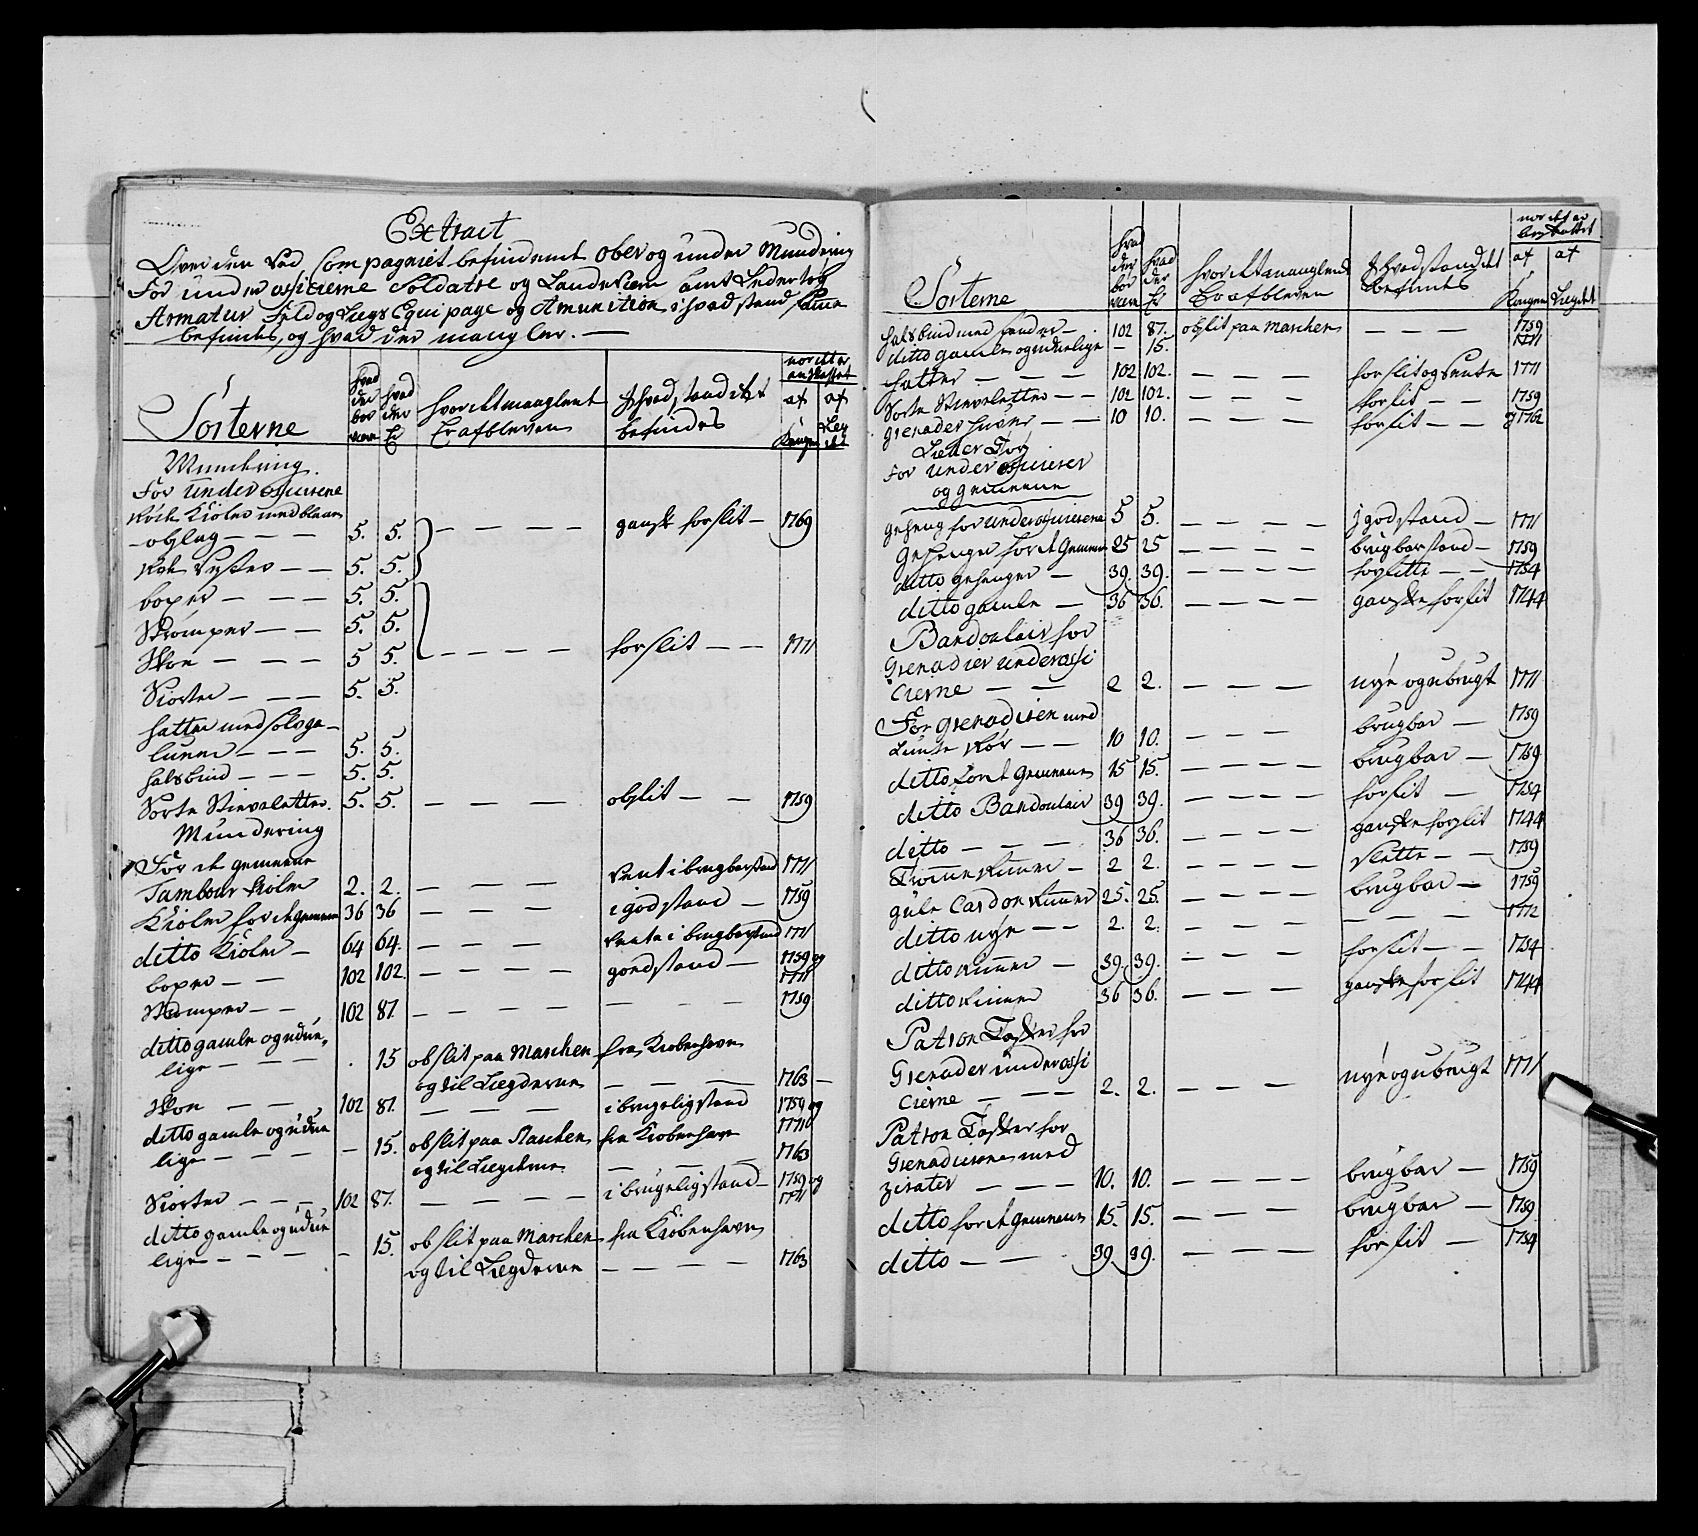 Extract
Over den ved Compagniet befindend Ober og under Mundering
For under officierne Soldatte og Landeværn samt Leder tøÿ
Armatur Feld og Liegs Equipage og Amunition i hvad stand samme
befindes, og hvad der mangler. —
Sorterne
hvad der bør være
hvad der Er
hvor det manglend Er afbleven
I hvad stand det befindes
nor det er anskaffet
af Kongen
af Leg det
Mundering.
For under officierne
Røde Kioler med blaae
opslag — — — 5. 5. — — — — gansk forslit — 1769
Røde Vester — — 5. 5.
boxer — — — 5. 5.
Strømper — — 5. 5.
Skoe — — — 5 5. — — — — forslit — — 1771
Skiorter — — — 5. 5.
hatter med sølvga-
luner — — — 5. 5.
halsbind — — — 5. 5.
Sorte Stieveletter. 5. 5. — — — obslit — — 1759
Mundering
For de gemeene
Tambour Kioler 2. 2. — — — vent i brugbar stand 1771
Kioler for de gemeene 36 36 — — — i god stand — 1759
ditto Kioler — 64 64. — — — vente i brugbar stand 1771
boxer — — 102 102. — — — goed stand — 1759 og 1771
Strømper — — 102 87. — — — — — — 1759
ditto gamle og udue,
lige — — — . 15 obslit paa Marschen fra Kiøbenhavn
og til Lægderne — — — 1763 —
Skoe — — 102 87. — — — i brugelig stand 1759 og 1771
ditto gamle og udue
lige — — — — 15. obslit paa Marschen fra Kiøbenhavn
og til Lægderne — — — 1763
Skiorter — — — 102 87. — — — i brugelig stand — 1759 og 1771
ditto gamle og udue
lige — — — — 15. obslit paa Marschen fra Kiøbenhavn
og til Lægderne — — — — 1763
Sorterne
hvad der bør være
hvad der Er
hvor det manglend Er afbleven
I hvad stand det befindes
nor det er anskaffet
af Kongen
af Lægdet
halsbind med spender — . 102 87. obslit paa Marschen — — — 1759
ditto gamle og uduelige — 15. 1771
hatter — — — 102 102. — — — forslit og vente 1771
Sorte Stieveletter — — 102 102. — — — forslit — — 1759
grenader huer — — 10 10. forslit — — 1762
Læder Tøÿ
For under officierer
og gemeene
geheng for underofficierene 5 5. — — — — j god stand — 1771
Gehenger for de Gemeene 25 25 — — — — brugbar stand — 1759
ditto gehenger — 39. 39. — — — — forslitte — — 1754
ditto gamle — 36 36. — — — — ganske forslit 1744
Bandoulair for
Grenadier underoffi
cierne — — 2 2. — — — nye og ubrugt 1771
For grenadieren med
Lunte Rør — — 10 10. — — — brugbar — 1759
ditto for de Gemeene 15 15. — — — — brugbar — 1759
ditto Bandoulair 39 39. — — — — forslit — 1754
ditto — — — 36 36. — — — — ganske forslit 1744
Tromme Rimmer — 2 2. — — — slette — — 1759
gule Cardon Rimmer 25. 25. — — — — brugbar — 1759
ditto nye — — 2. 2. — — — — — — 1772
ditto Rimmer — 39. 39. — — — forslit — — 1754
ditto Rimmer 36 36. — — — ganske forslit 1744
Patron Tasker for
Grenader underoffi
cierne — — — 2. 2. — — — nye og ubrugt 1771
Patron Tasker for
Grenadierene med
zirater — — — 10. 10. — — — brugbar — 1759
ditto for de Gemeene 15. 15. — — — brugbar — 1759
ditto — — 39. 39. — — — forslit — 1754